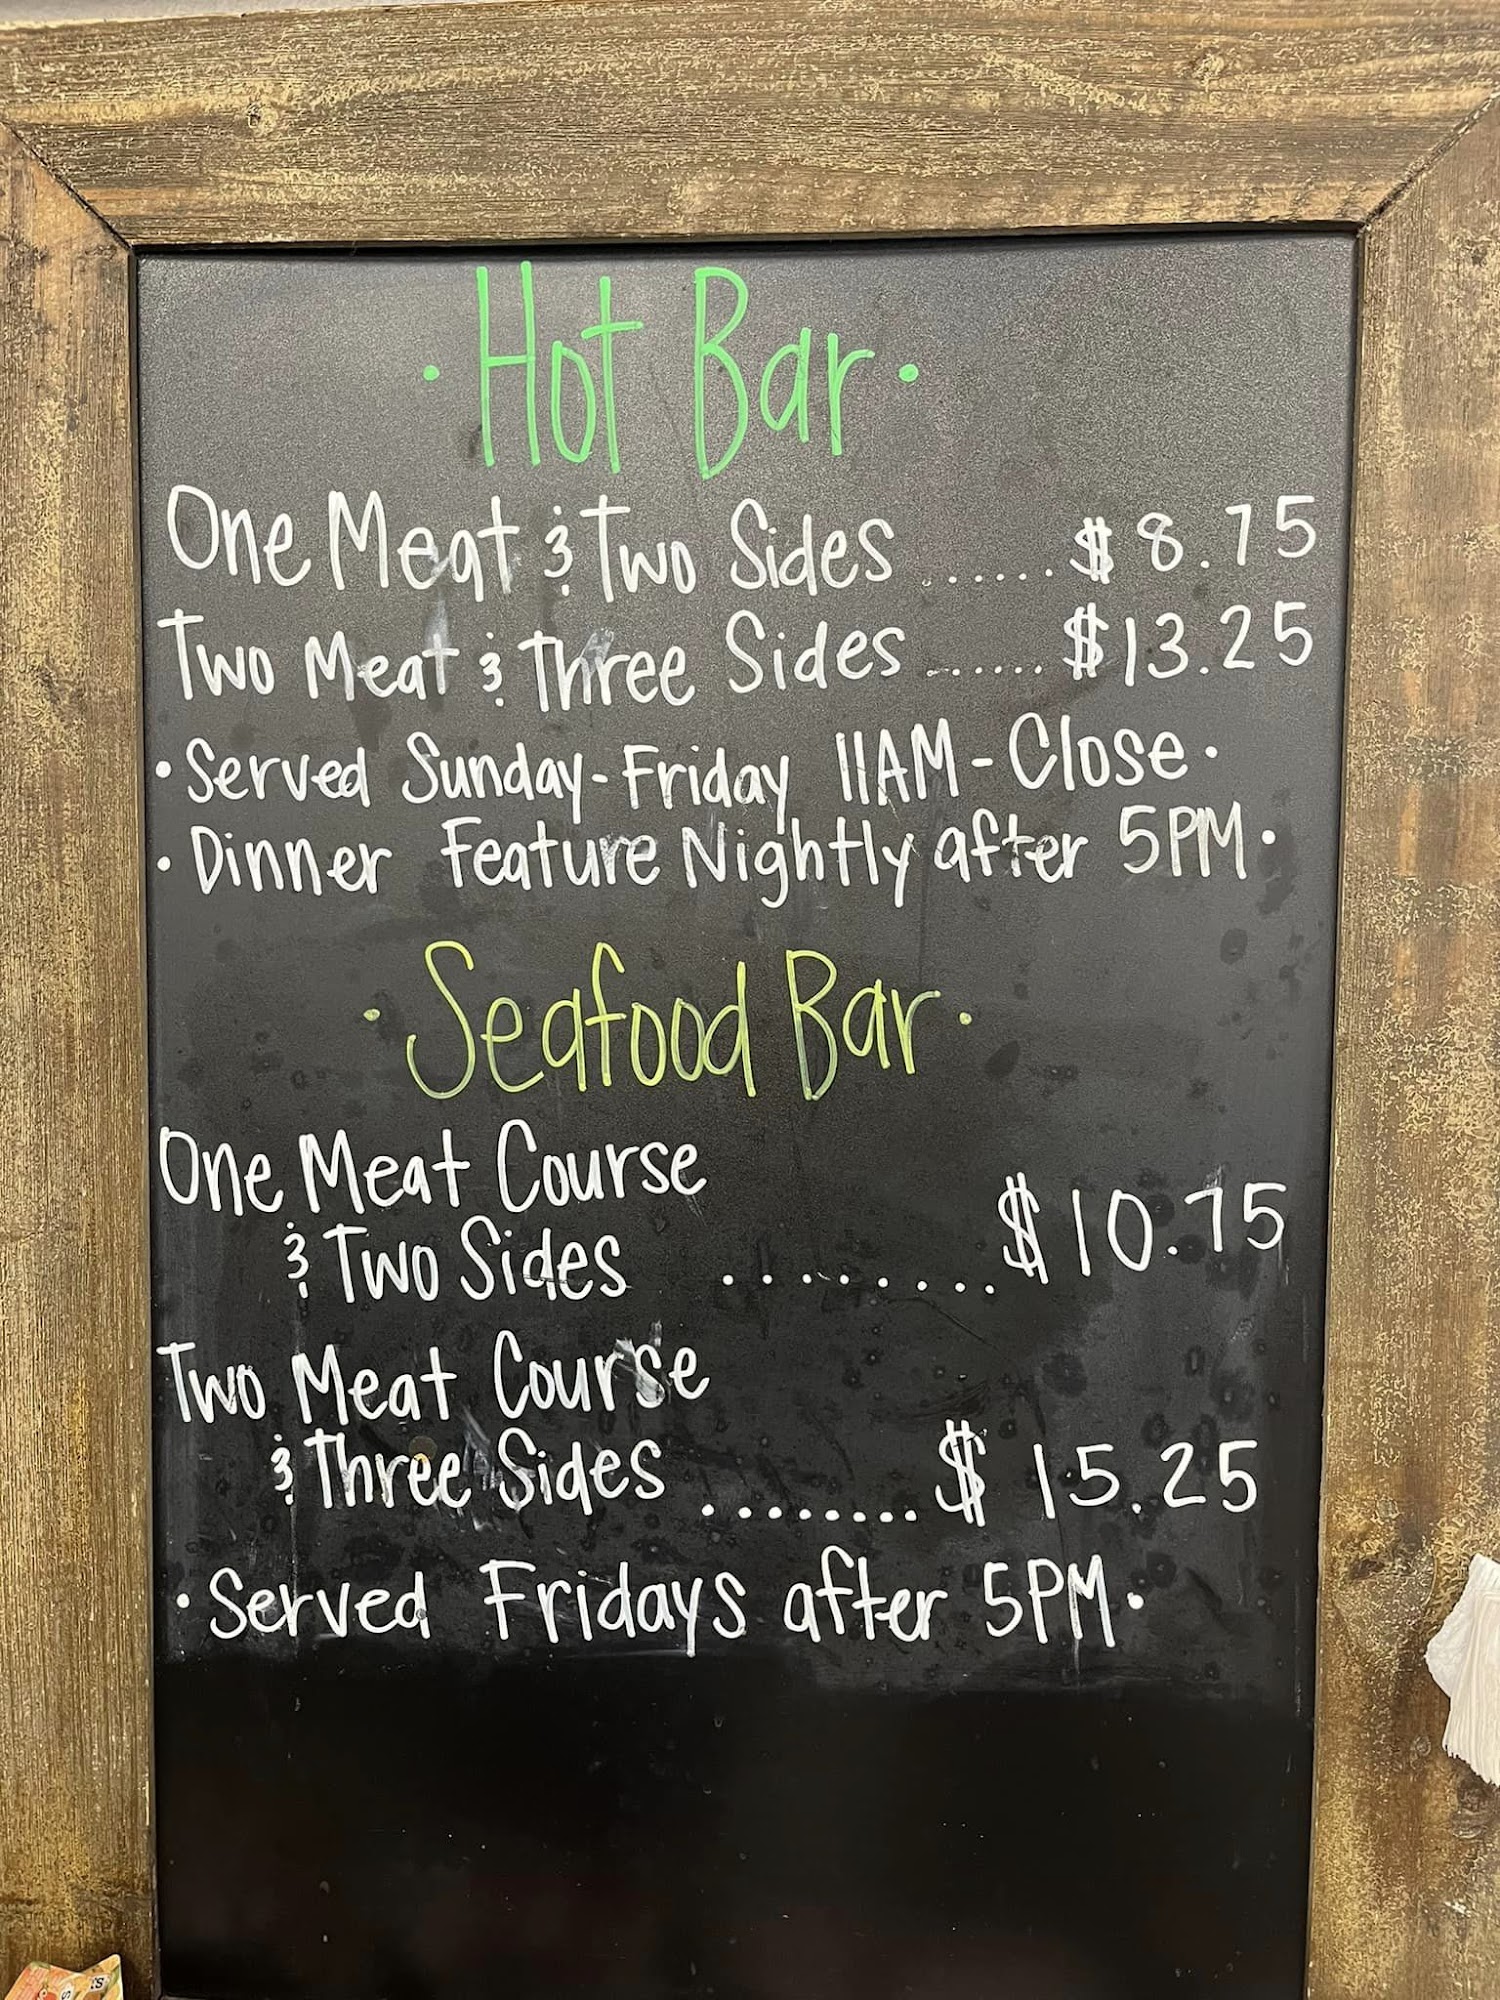 · Hot Bar ·
One Meat & Two Sides ...... $8.75
Two Meat & Three Sides ...... $13.25
• Served Sunday-Friday 11AM-Close •
• Dinner Feature Nightly after 5PM •
· Seafood Bar ·
One Meat Course
& Two Sides ......... $10.75
Two Meat Course
& Three Sides ........ $15.25
• Served Fridays after 5PM •